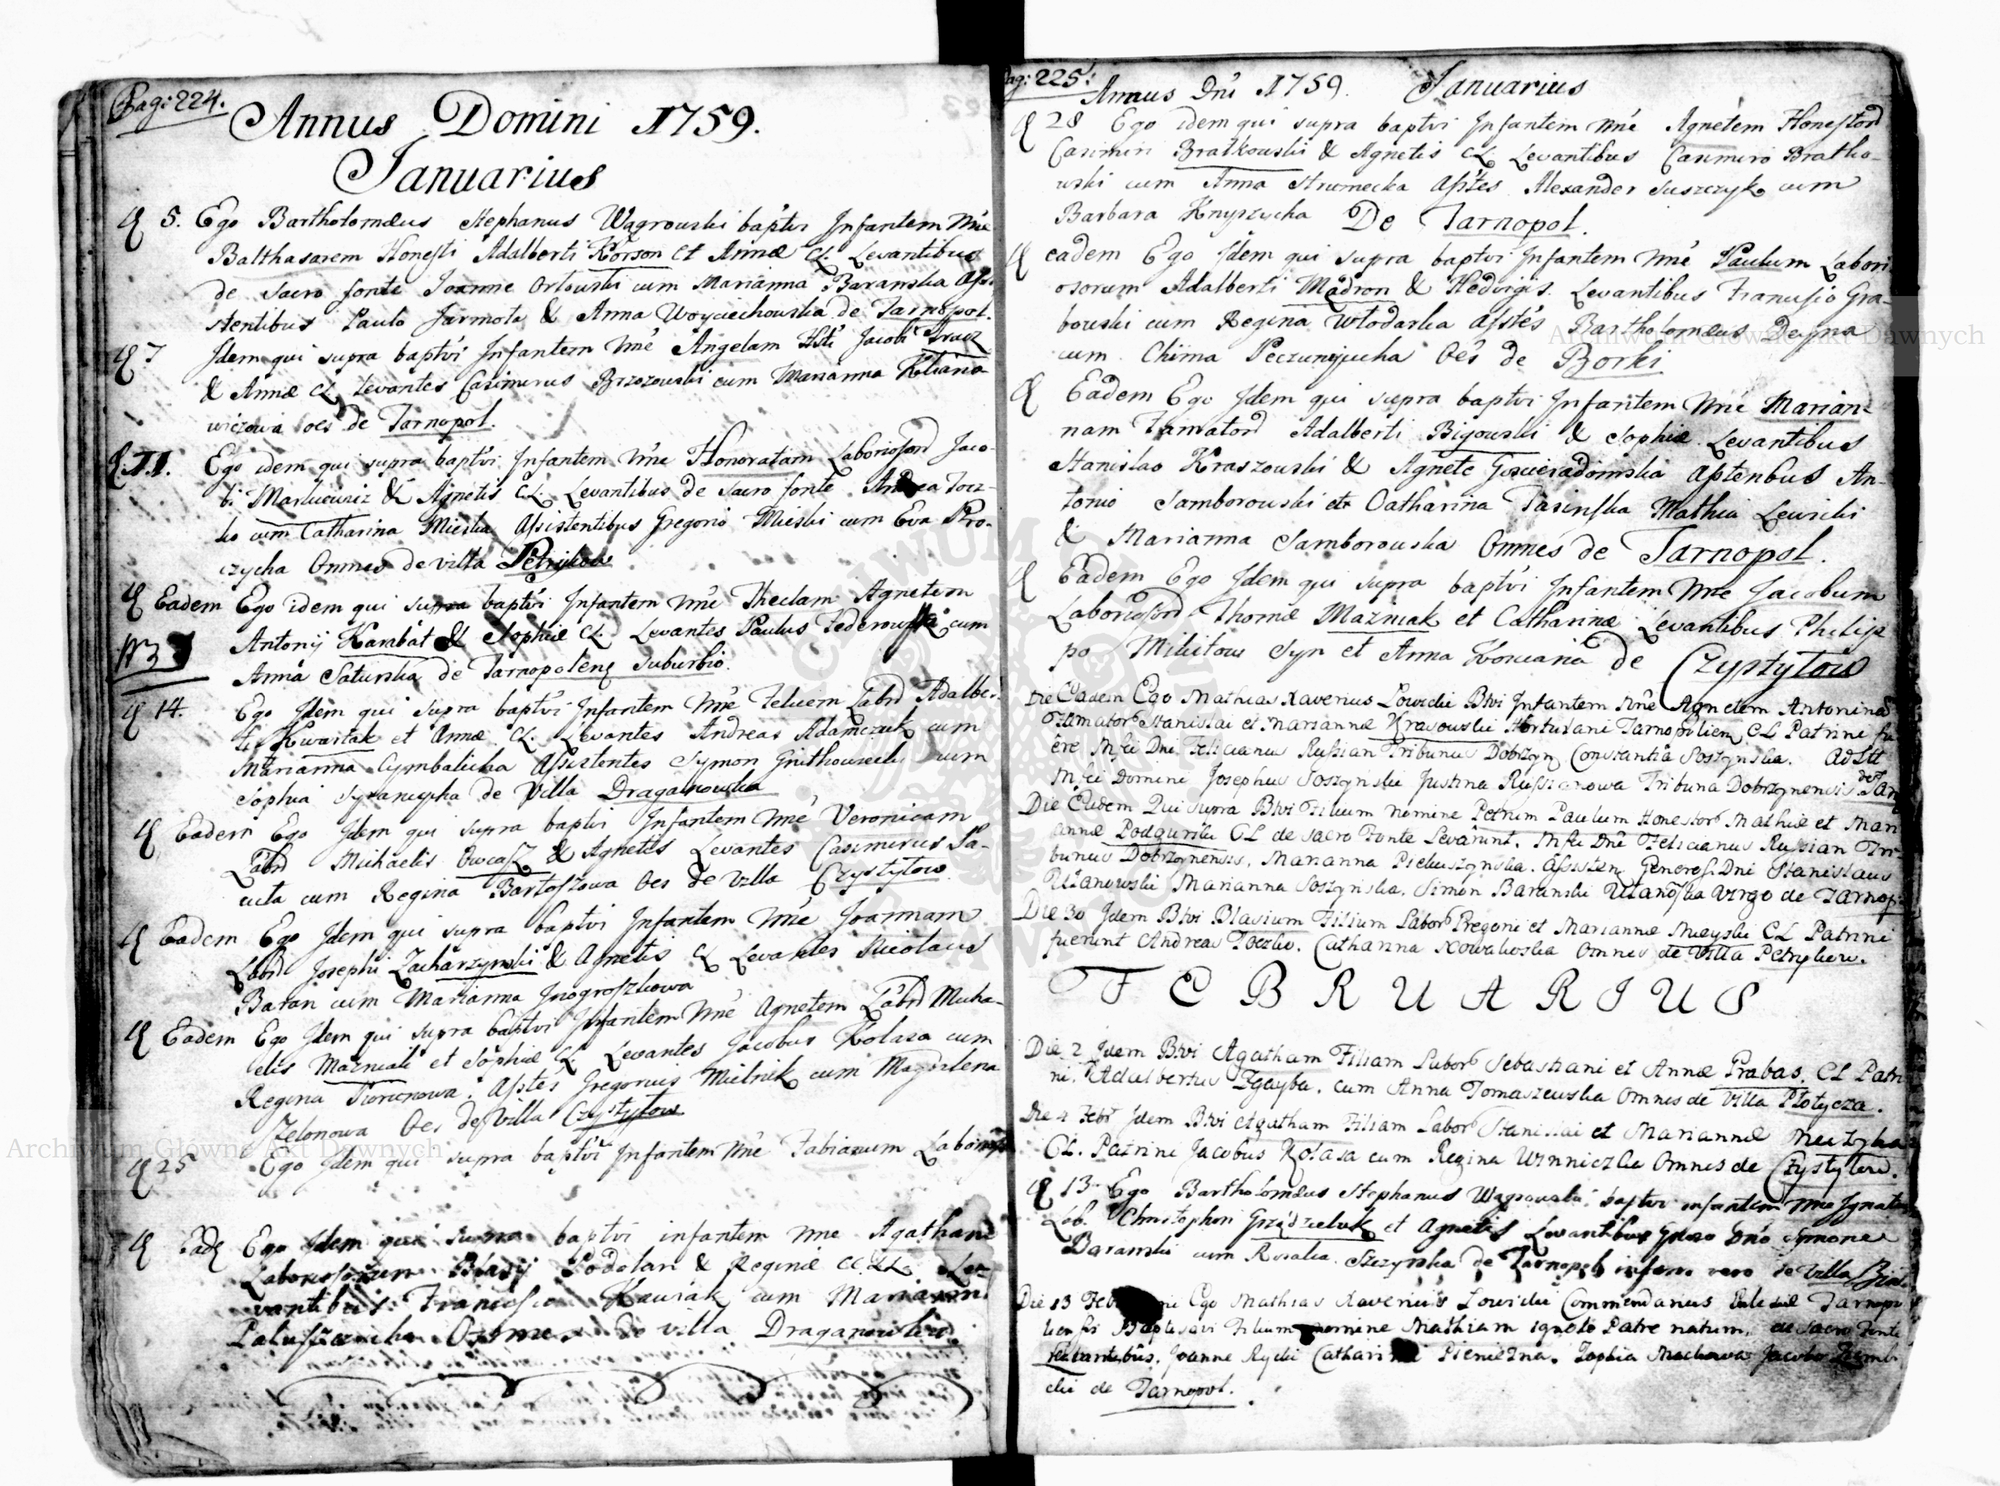 Pag: 224.
Annus Domini 1759.
Januarius
5. Ego Bartholomæus Stephanus Wągrowski baptvi Infantem Nñe
Balthasarem Honesti Adalberti Korson et Annæ CL. Levantibus
de Sacro fonte Joanne Orłowski cum Marianna Baranska Assi-
stentibus Paulo Jarmota & Anna Woyciechowska de Tarnopol.
7 Idem qui supra baptvi Infantem Nñe Angelam Jacobi
& Annæ CL Levantes Casimirus Brzozowski cum Marianna
de Tarnopol.
11. Ego idem qui supra baptvi Infantem Nñe Honoratam Jaco-
bi & Agnetis CL Levantibus de Sacro fonte Andrea Tocz-
ko cum Catharina Mieska Assistentibus Gregorio Mieski cum Eva Pro-
czycha Omnes de villa Petrykow
Eadem Ego idem qui supra baptvi Infantem Nñe Theclam Agnetem
Antonij Kambat & Sophiæ CL. Levantes Paulus cum
Anna Saturska de Tarnopoleñ Suburbio.
14. Ego Idem qui supra baptvi Infantem Nñe Felicem Labrd Adalber-
ti Kwartak et Annæ CL Levantes Andreas Adamczuk cum
Marianna Cymbalicka Assistentes Symon cum
Sophia de Villa Draganowka
Eadem Ego Idem qui supra baptvi Infantem Nñe Veronicam
Labrd Michaelis Owcasz & Agnetis Levantes Casimirus Sa-
cum Regina Bartoszowa Oes de Villa Czystylow
Eadem Ego Idem qui supra baptvi Infantem Nñe Joannam
Labrd Josephi Zacharzynski & Agnetis CL Levantes Nicolaus
Baran cum Marianna
Eadem Ego Idem qui supra baptvi Infantem Nñe Agnetem Labrd Micha-
elis Mazniak et Sophiæ CL Levantes Jacobus Kolasa cum
Regina Asstes Gregorius Mielnik cum Magdalena
Zelonowa Oes de Villa Czystylow
25 Ego Idem qui supra baptvi Infantem Nñe Fabianum
Ego Idem qui supra baptvi infantem Nñe Agatham
Blasij Podolan & Reginæ CL Le-
vantibus Francisco Kawiak cum Marianna
Omnes de villa Draganowka.
Pag: 225.
Annus Dñi 1759. Januarius
28 Ego idem qui supra baptvi Infantem Nñe Agnetem Honestord
Casimiri Bratkowski & Agnetis CL Levantibus Casimiro Bratko-
wski cum Anna Strumecka Asstes Alexander Suszczyk cum
Barbara Knyszycha De Tarnopol.
eadem Ego Idem qui supra baptvi Infantem Nñe Paulum Labori
osorum Adalberti Mądron & Hedvigis. Levantibus Francisco Gra-
bowski cum Regina Włodarka Asstes Bartholomæus Deyna
cum Chima Oes de Borki.
Eadem Ego Idem qui supra baptvi Infantem Nñe Marian-
nam Famatord Adalberti Bigowski & Sophiæ Levantibus
Stanislao Kraszowski & Agnete Astenbus An-
tonio Samborowski et Catharina Jasinska Mathia Lewicki
& Marianna Samborowska Omnes de Tarnopol.
Eadem Ego Idem qui supra baptvi Infantem Nñe Jacobum
Thomæ Mazniak et Catharinæ Levantibus Philip
po Syn et Anna de Czystylow
Die Eadem Ego Mathias Xaverius Lowicki Btvi Infantem Nñe Agnetem Antoninam
Famator Stanislai et Mariannæ Krasowskie Hortulani Tarnopolien CL Patrini fu
ere Mfci Dni Felicianus Russian Tribunus Dobrzyn Constantia Soszynska. Adstt
Mfci Domini Josephus Soszynski Justina Russianowa Tribuna Dobrzynensis de Tar
Die Eadem Qui Supra Btvi Filium nomine Petrum Paulum Honestor Mathiæ et Mari
annæ Podgurski CL de Sacro Fonte Levarunt. Mfci Dñi Felicianus Russian Tri-
bunus Dobrzynensis, Marianna Assisten Generos. Dni Stanislaus
Ulanowski Marianna Soszynska. Simon Baranski Virgo de Tarnop
Die 30 Idem Btvi Blasium Filium Labor Gregorii et Mariannæ CL Patrini
fuerunt Andreas Toczko. Catharina Kowalowska Omnes de Villa Petrykow.
FEBRUARIUS
Die 2 Idem Btvi Agatham Filiam Labor Sebastiani et Annæ Prabas. CL Patri
ni. Adalbertus Zgayba. cum Anna Tomaszewska Omnes de Villa Płotycza.
Die 4 Febr Idem Btvi Agatham Filiam Labor Stanislai et Mariannæ
CL. Patrini Jacobus Kolasa cum Regina Winniczka Omnes de Czystylow.
13 Ego Bartholomæus Stephanus Wągrowski baptvi infantem Nñe
Lab. Christophori et Agnetis Levantibus Dño Simone
Baranski cum Rosalia de Tarnopol infans vero de Villa
Die 13 Ego Mathias Xaverius Lowicki Commendarius Tarnopo
liensis Baptisavi Filium nomine Mathiam igneto Patre natum. de Sacro Fonte
Levantibus. Joanne Rycki Zophia Jacobo
de Tarnopol.
Archiwum Główne Akt Dawnych
Archiwum Główne Akt Dawnych